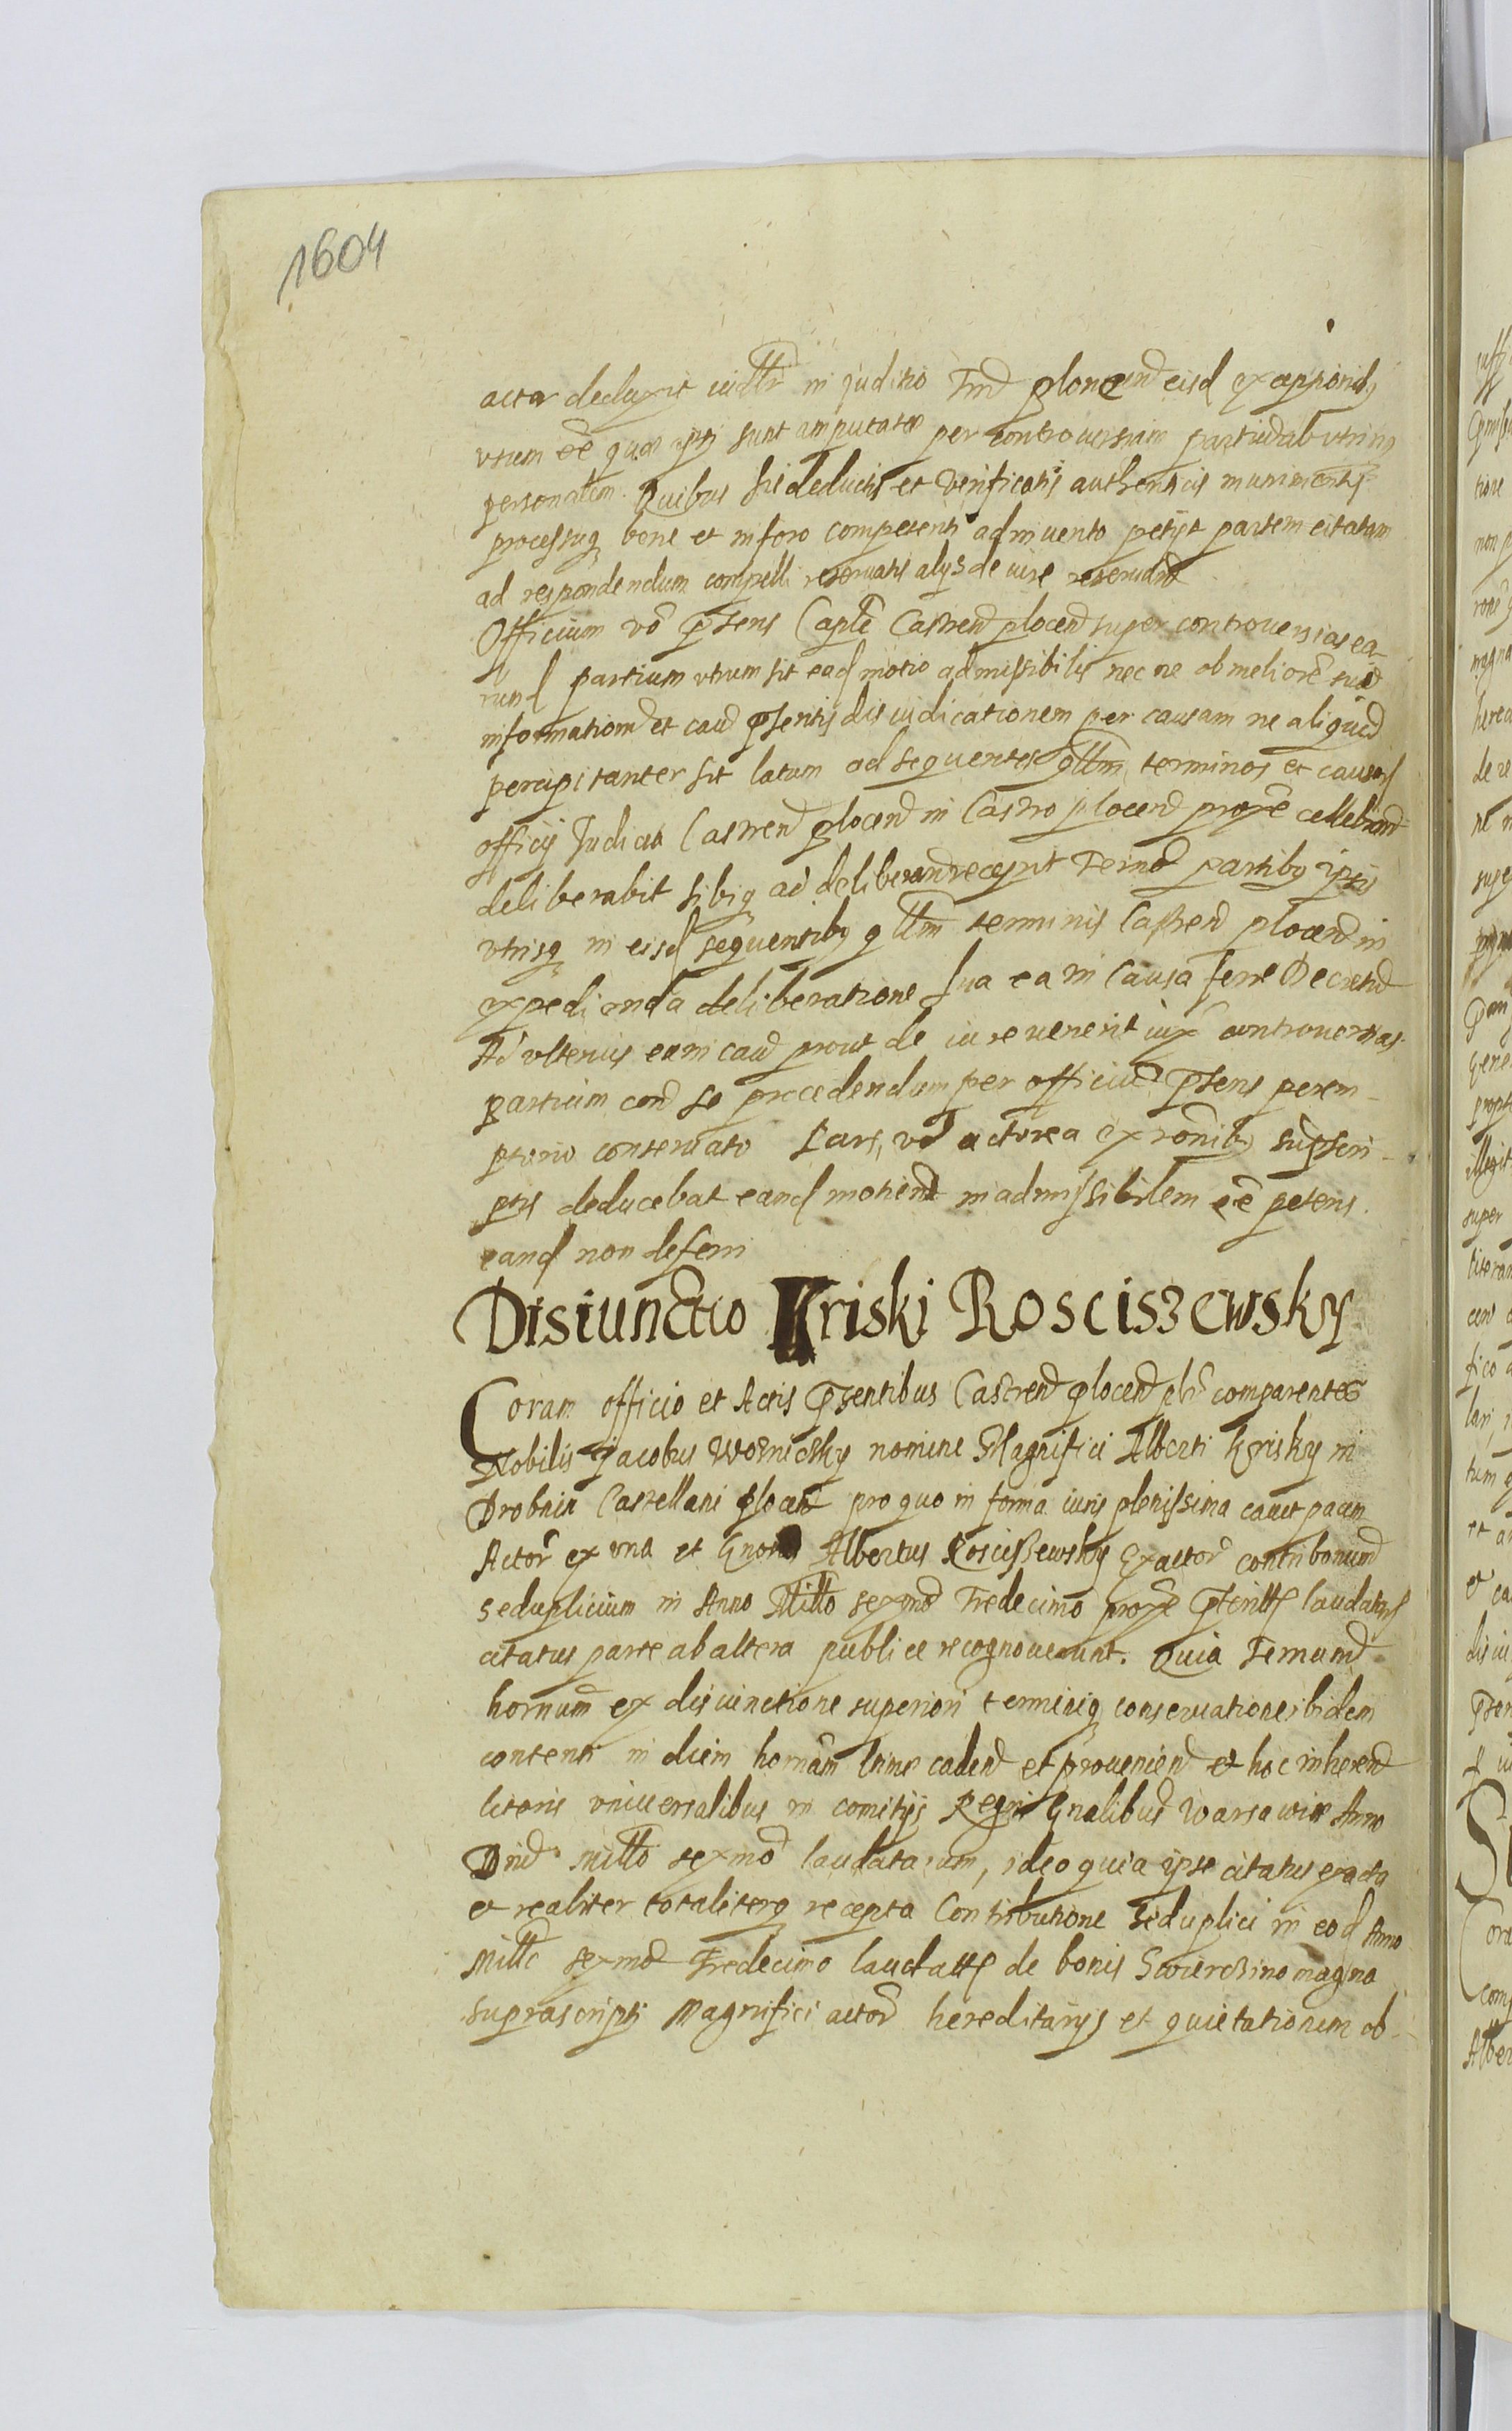 1604
actor deduxit in juditio eisd exceptionib
utrum ee quae ipsi sunt amputatae per controversiam partium ab utring
personalem. Quibus sic deductis et Verificatis authenticis munimentis
processuq bone et in foro competenti adinvento petijt partem citatam
ad respondendum compelli reservatis alys de iure reservand
Officium vo pnsens Caple Castren plocen super controversias ea-
rund partium utrum sit ead motio admissibilis nec ne ob meliore sua
information et caus pnsentis dis iudicationem per causam ne aliquid
percipitanter sit latum ad sequentes terminos et causas
officij Judicia Castren plocen in Castro plocen proxe cellebrand
deliberabit sibiq ad deliberand recepit Termo partibq ipsis
utrisq in eisd sequentibq terminis Castren plocen in
expedienda deliberatione sua ea in Causa ferre Decretu
Ad ulterius ea in caus prout de iure venerit iux controversias
partium cora se procedendum per officiu pnsens perem-
ptorio conservato Pars vo actorea ex ronibq supscri-
ptis deducebat eand motione inadmissibilem ee petens
eand non deferri
Disiunctio Kriski Rosciszewsky
Coram officio et Actis pnsentibus Castren plocen comparentes
Nobilis Jacobus Wozniczky nomine Magnifici Alberti Krisky in
Drobnin Castellani plocen pro quo in forma iuris plenissima cavit
Actor ex una et Gnosus Albertus Rosciszewsky Exactor contribonum
seduplicium in Anno Millo sexmo Tredecimo proxe laudatarum
citatus parte ab altera publice recognoverunt. Quia Termum
hornum ex disiunctione superiori terminiq conservatione ibidem
contenti in diem hornam caden et provenien et hoc inheren
literis universalibus in comitijs Regni Gnalibus Warsawiae Anno
Dni Millo sexmo laudatarum, ideo quia ipse citatus exacta
et realiter totaliterq recepta Contributione Seduplici in eod Anno
Millo sexmo Tredecimo laudatt de bonis Swierczino magna
suprascripti Magnifici actor hereditarys et quietationem ob-